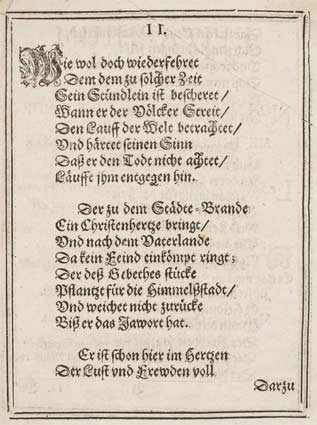 II.
Wie wol doch wiederfehret
Dem dem zu solcher Zeit
Sein Stündlein ist bescheret/
Wann er der Völcker Streit/
Den Lauff der Welt betrachtet/
Und härtet seinen Sinn
Daß er den Todt nicht achtet/
Läufft jhm entgegen hin.
Der zu dem Städte-Brande
Ein Christenhertze bringt/
Und nach dem Vaterlande
Da kein Feind einkömpt ringt;
Der deß Gebethes stücke
Pflantzt für die Himmelßstadt/
Und weichet nicht zurücke
Biß er das Jawort hat.
Er ist schon hier im Hertzen
Der Lust vnd Frewden voll
Darzu